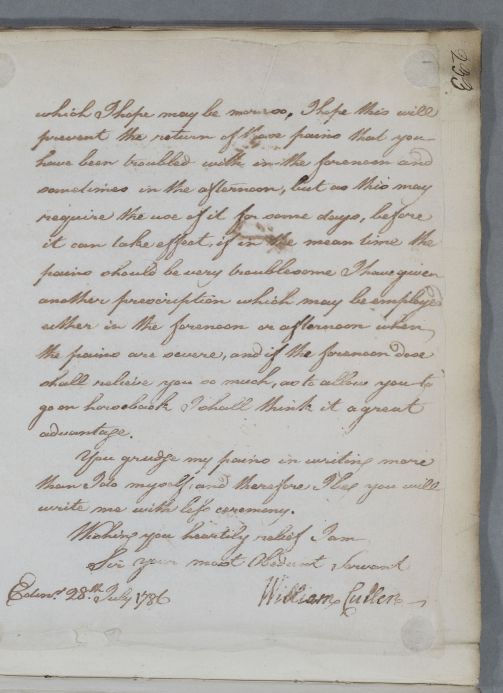 253
which I hope may be more so, I hope this will
prevent the return of those pains that you
have been troubled with in the forenoon and
sometimes in the afternoon, but as this may
require the use of it for some days, before
it can take effect, if in the mean time the
pains should be very troublesome I have given
another prescription which may be employed
either in the forenoon or afternoon when
the pains are severe, and if the forenoon dose
shall relieve you so much, as to allow you to
go on horseback I shall think it a great
advantage.
You grudge my pains in writing more
than I do myself, and therefore I beg you will
write me with less ceremony.
Wishing you heartily relief I am
Sir your most Obedient Servant
Edinr. 28th. July 1786 William Cullen